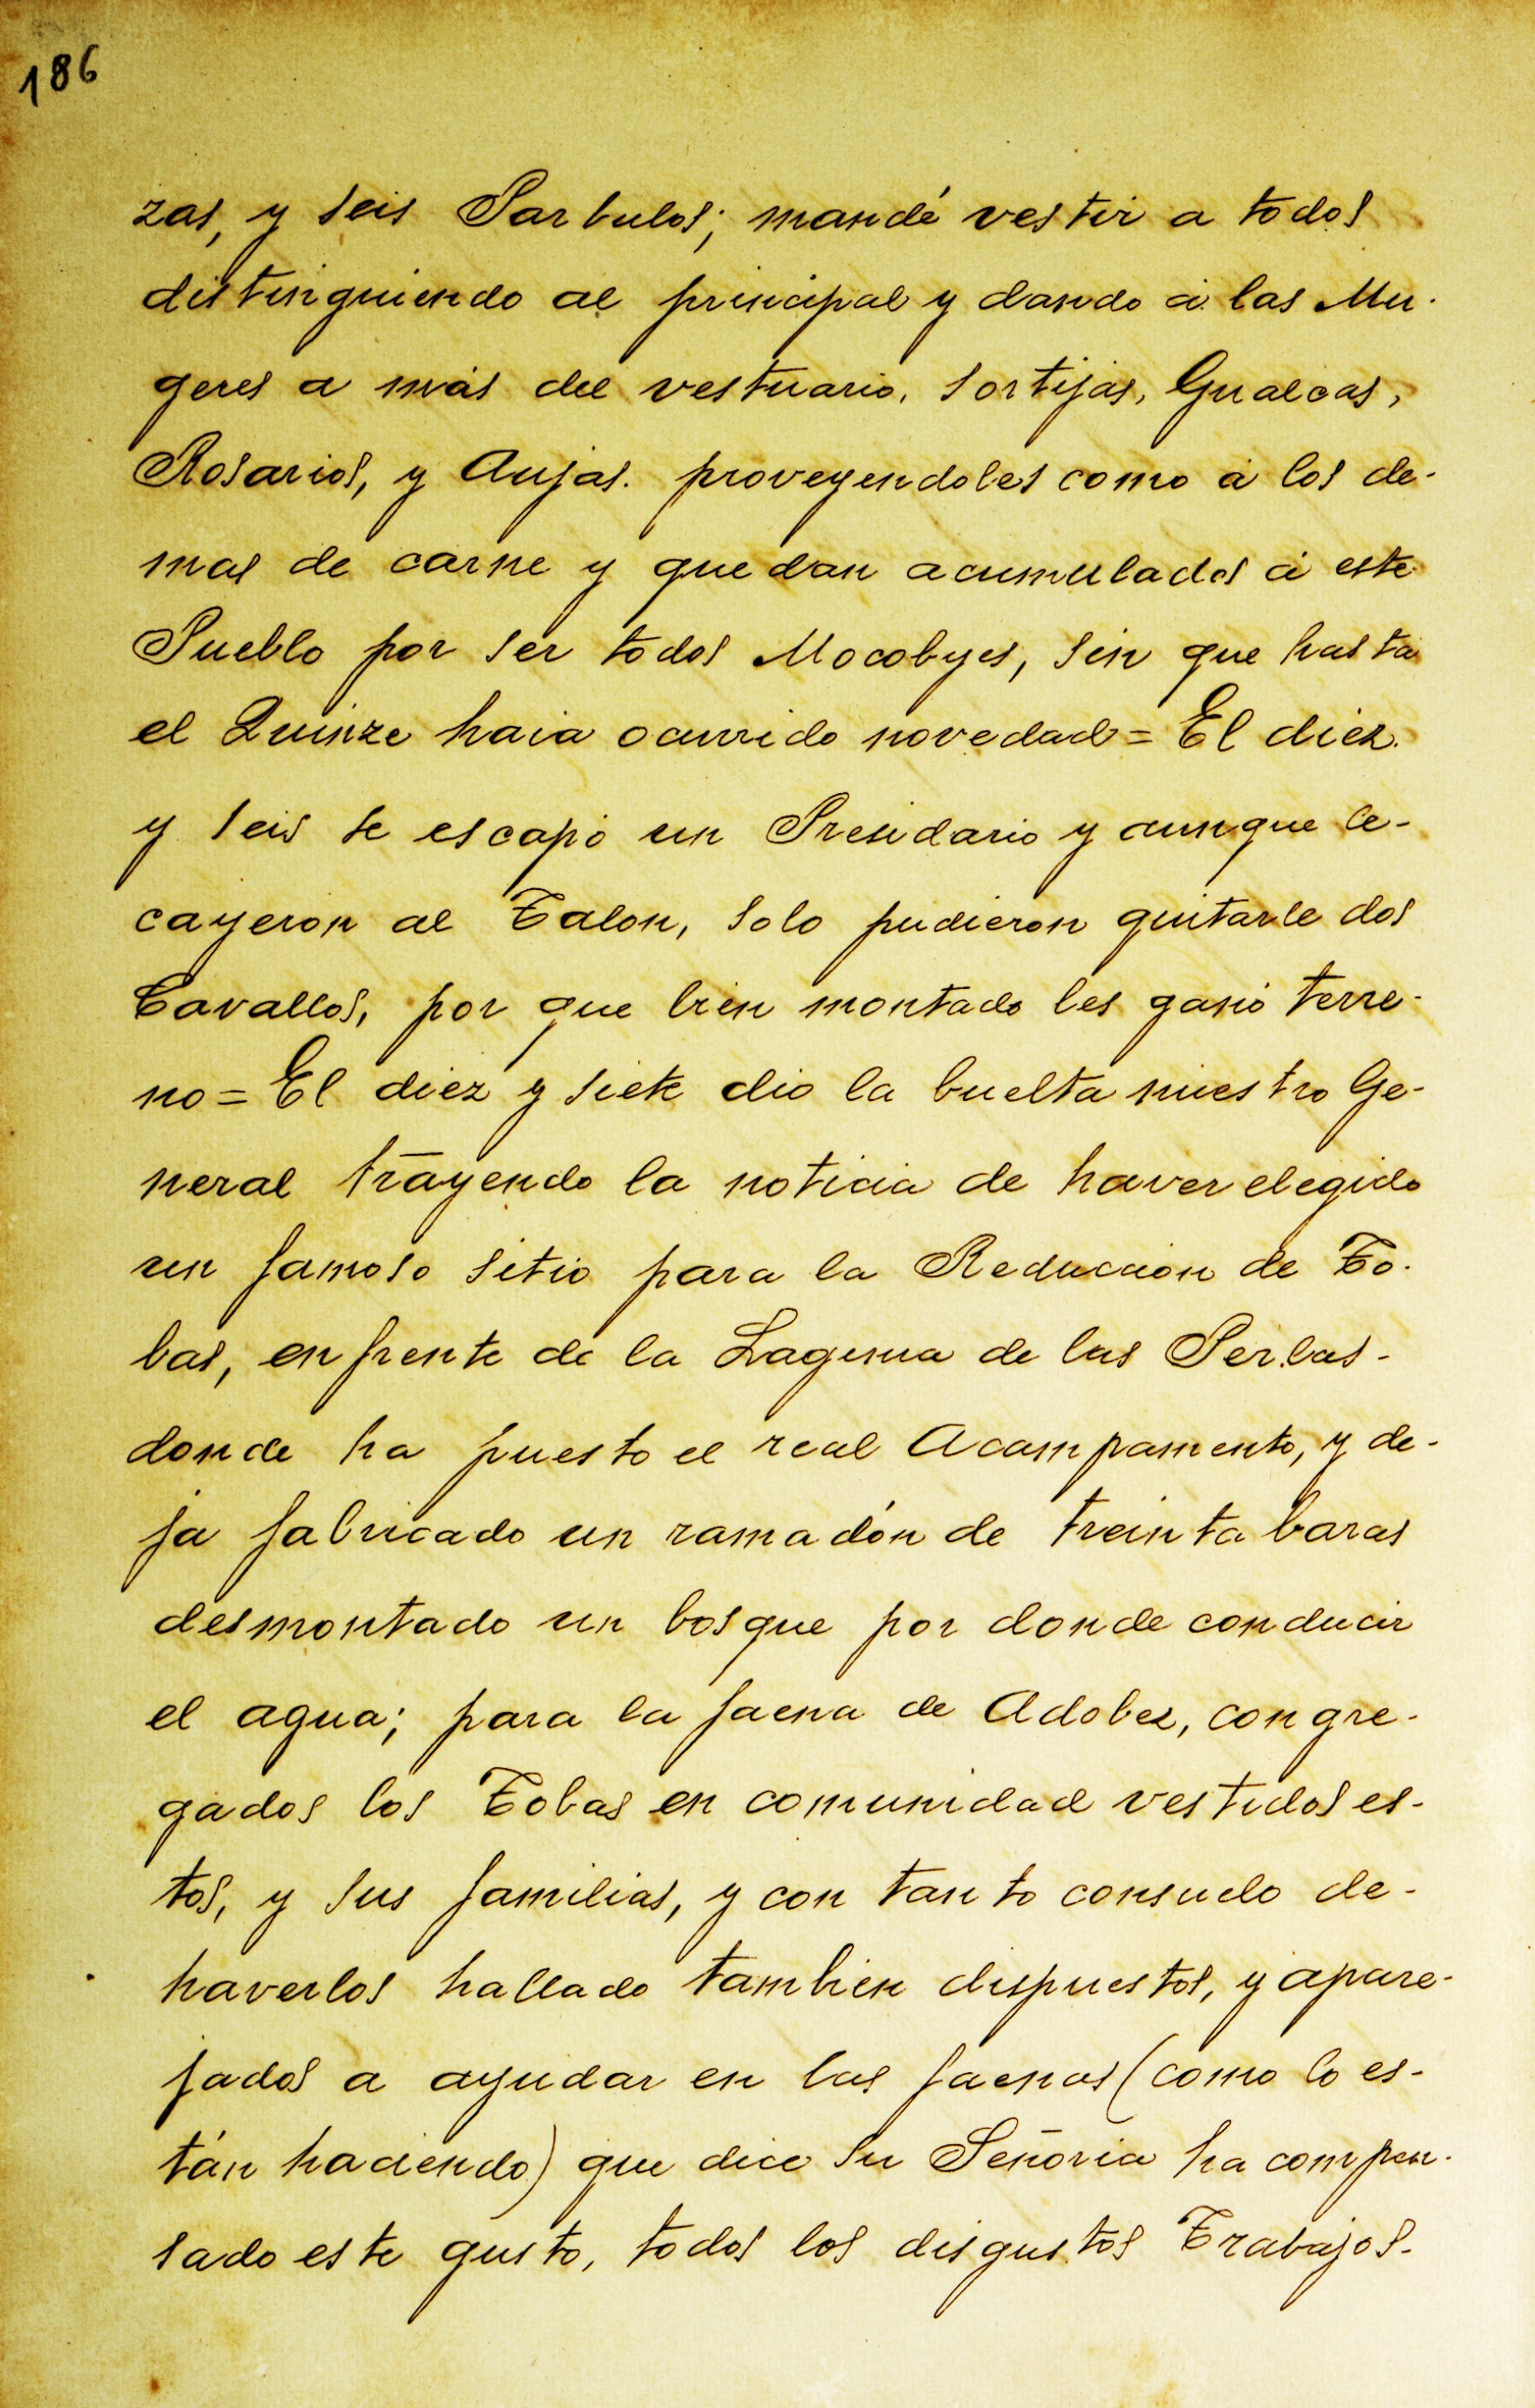 186
zas, y seis Parbulos; mandé vestir a todos
distinguiendo al principal y dando á las Mu-
geres a más del vestuario, sortijas, Gualcas,
Rosarios, y Aujas. proveyendoles como á los de-
mas de carne y quedan acumulados á este
Pueblo por ser todos Mocobyes, sin que hasta
el Quinze haia ocurrido novedad = El diez
y seis se escapó un Presidario y aunque le-
cayeron al Talon, solo pudieron quitarle dos
Cavallos, por que bien montado les ganó terre-
no = El diez y siete dio la buelta nuestro Ge-
neral trayendo la noticia de haver elegido
un famoso sitio para la Reduccion de To-
bas, enfrente de la Laguna de las Perlas-
donde ha puesto el real Acampamento, y de-
ja fabricado un ramadón de treinta baras
desmontado un bosque por donde conducir
el agua; para la faena de Adobes, congre-
gados los Tobas en comunidad vestidos es-
tos, y sus familias, y con tanto consuelo de-
haverlos hallado tambien dispuestos, y apare-
jados a ayudar en las faenas (como lo es-
tán haciendo) que dice Su Señoria ha compen-
sado este gusto, todos los disgustos Trabajos-